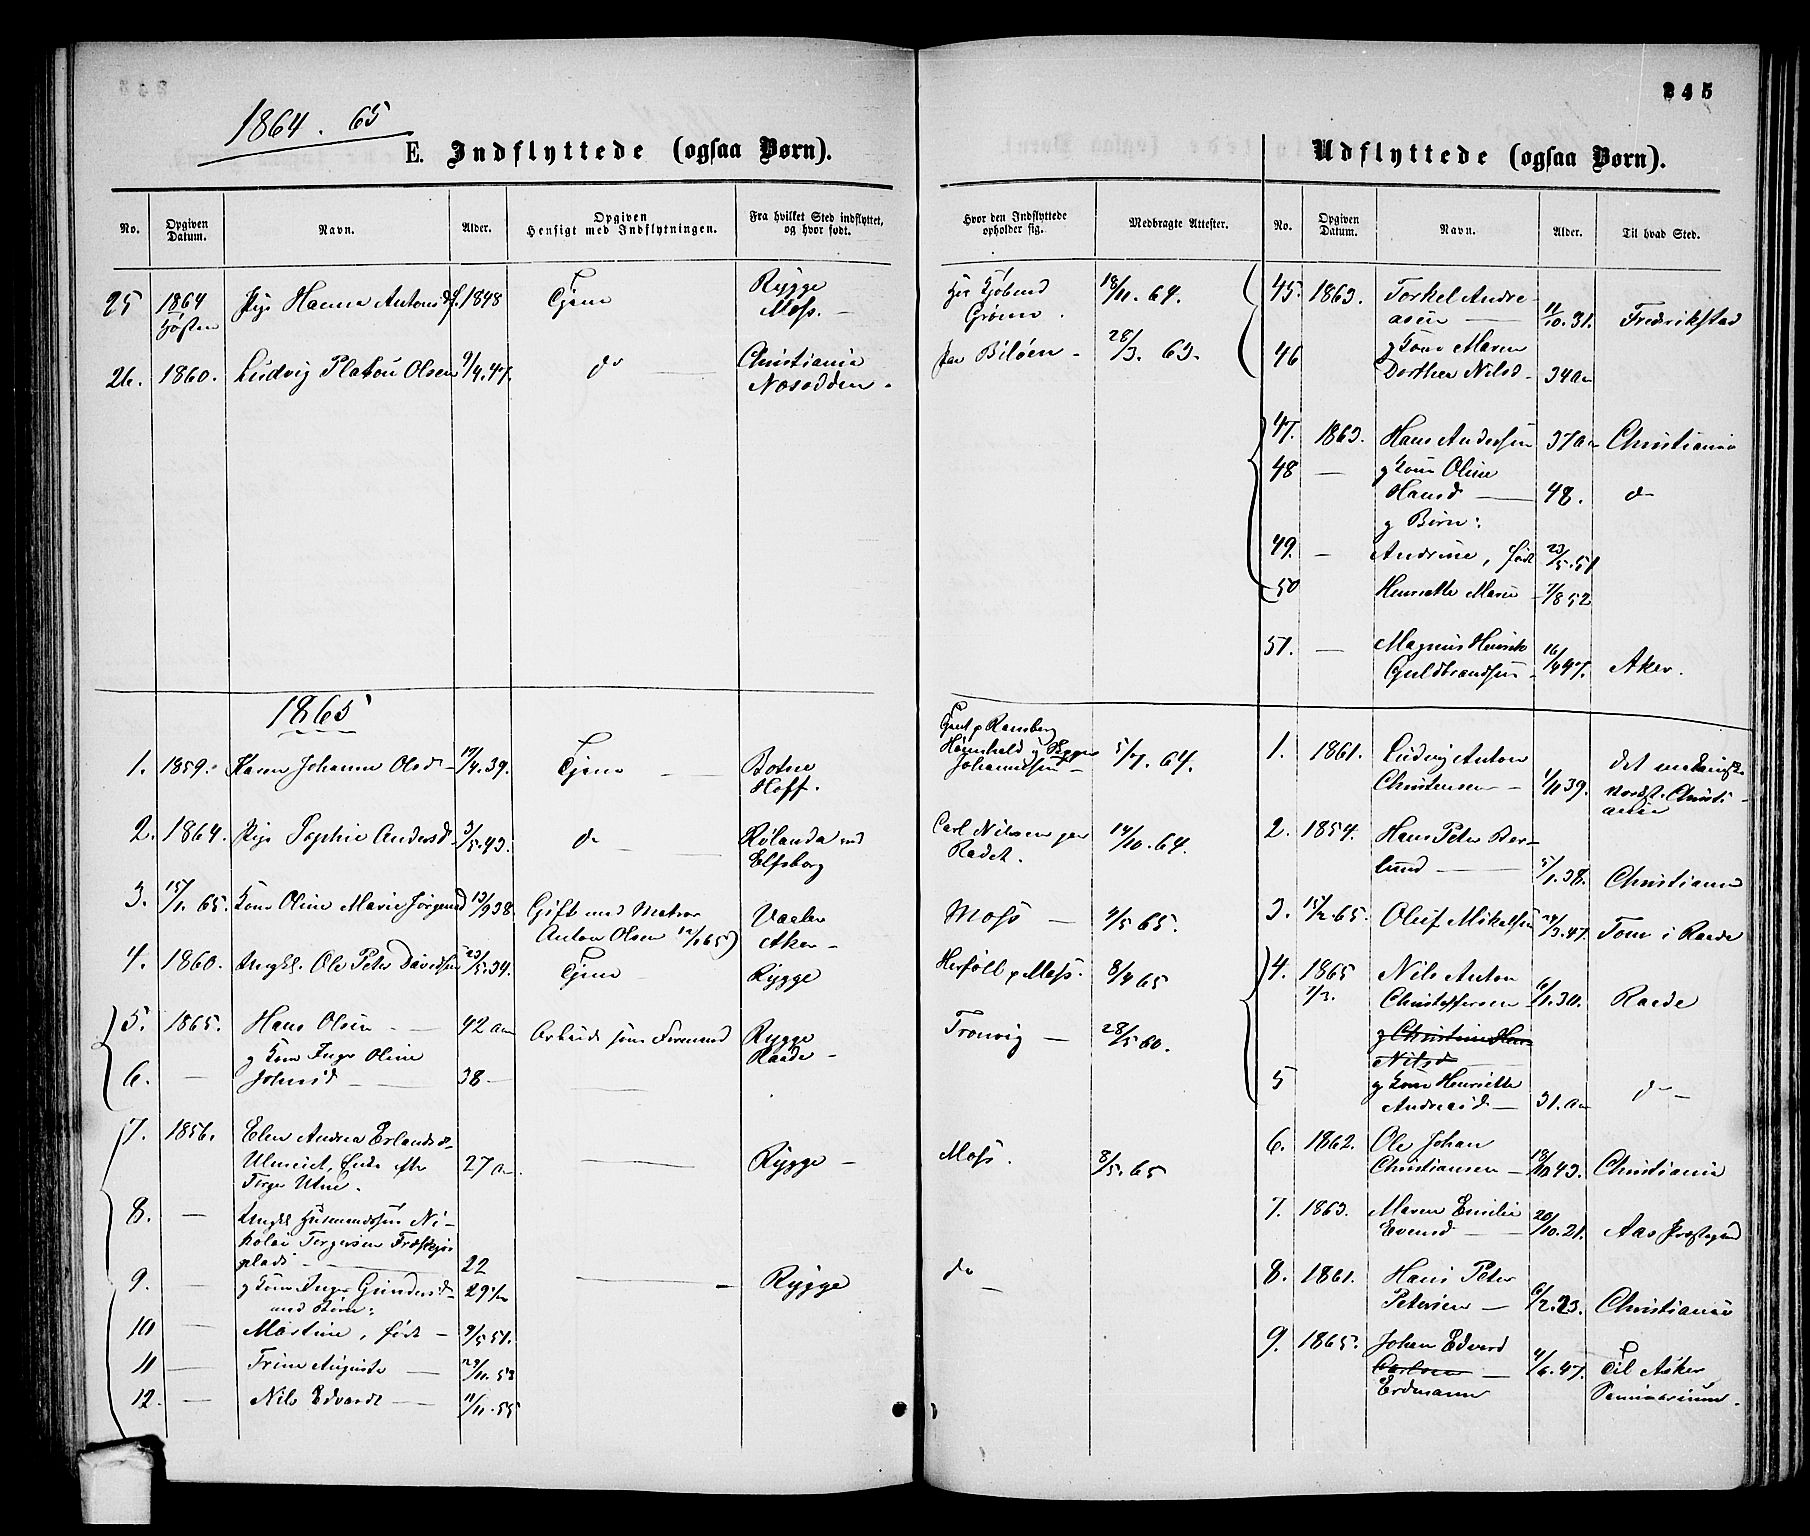 245
1864. 65
E. Indflyttede (ogsaa Børn).
No.
Opgiven Datum.
Navn.
Alder.
Opgiven Hensigt med Indflytningen.
Fra hvilket Sted indflyttet, og hvor født.
Hvor den Indflyttede opholder sig.
Medbragte Attester.
25 1864 Pige Hanna Antonsd f. 1848 Tjene Rygge 18/11. 64.
Høsten Moss. —
26. 1860. Ludvig Platou Olsen 9/4.47. do Christiania 28/3. 63.
Næsodden.
1865
1. 1859. Karen Johanne Olsd 17/4.39. Tjene Botne 5/7. 64.
Hoff.
2. 1864. Pige Sophie Andersd 3/5.43. do Carl Nilsen 14/10.64.
Elfsborg Radet.
3. 15/1. 65. Kone Oline Marie Jørgensd 13/9 38. Gift med Matros Vaaler Moss — 4/5 65.
Anton Olsen 12/1 65) Aker —
4. 1860. Ungkl. Ole Peter Davidsen 23/5.34. Tjene — Rygge p. Moss. 8/4 65
5. 1865. Hans Olsen — 42 aar Arbeide som Formand Rygge Tronvig — 28/5 60.
g Kone Inger Oline Raade —
6. — Johnsd — 38 —
7. 1856. Elen Andrea Erlandsd Moss. 8/5. 65
27 a Rygge —
8. — Ungkl Husmandssøn Ni-
kolai Torgersen
22
9. — g Kone Inger Gundersd 29 1/2 Rygge do —
med Børn:
10 — Mostine, født — 9/5 51.
11 — Trine Auguste — 29/11. 52
12. — Nils Edvardt — 11/11. 55
Udflyttede (ogsaa Børn).
No.
Opgiven Datum.
Navn.
Alder.
Til hvad Sted.
45. 1863. Torkel Andre-
asen — 11/10.31. Fredrikstad
46 g Kone Maren
Dorthea Nilsd — 34 aar
47. 1863. Hans Andersen 37 aar Christiania
48 — g Kone Oline
Hansd — 48. do
g Børn:
49. — Andrine, født 23/5.51
50 Henriette Marie — 7/8 52
51. — Magnus Henrik
Guldbrandsen — 16/4 47. Aker.
1. 1861. Ludvig Anton
Christensen — 1/11 39. Christi-
ania
2. 1854. Hans Peter Ber-
lund — 5/1. 38. Christiania
3. 15/2. 65. Oluf Mikelsen 24/3.47. Tom i Raade
4. 1865 Nils Anton
1/3. Christoffersen — 6/11.30. Raade
g Christine
Nilsd
5 g Kone Henriette
Andreasd — 31. aar do —
6. 1862. Ole Johan
Christiansen — 18/10 43. Christiania
7. 1863. Maren Emilie
Evensd — 20/10.21. Aas Præstegjeld
8. 1861. Hans Peter
Petersen — 6/2.23. Christiania
9. 1865. Johan Edvard
Carlsen 4/6.47. Til Asker
Erdmann Seminarium.